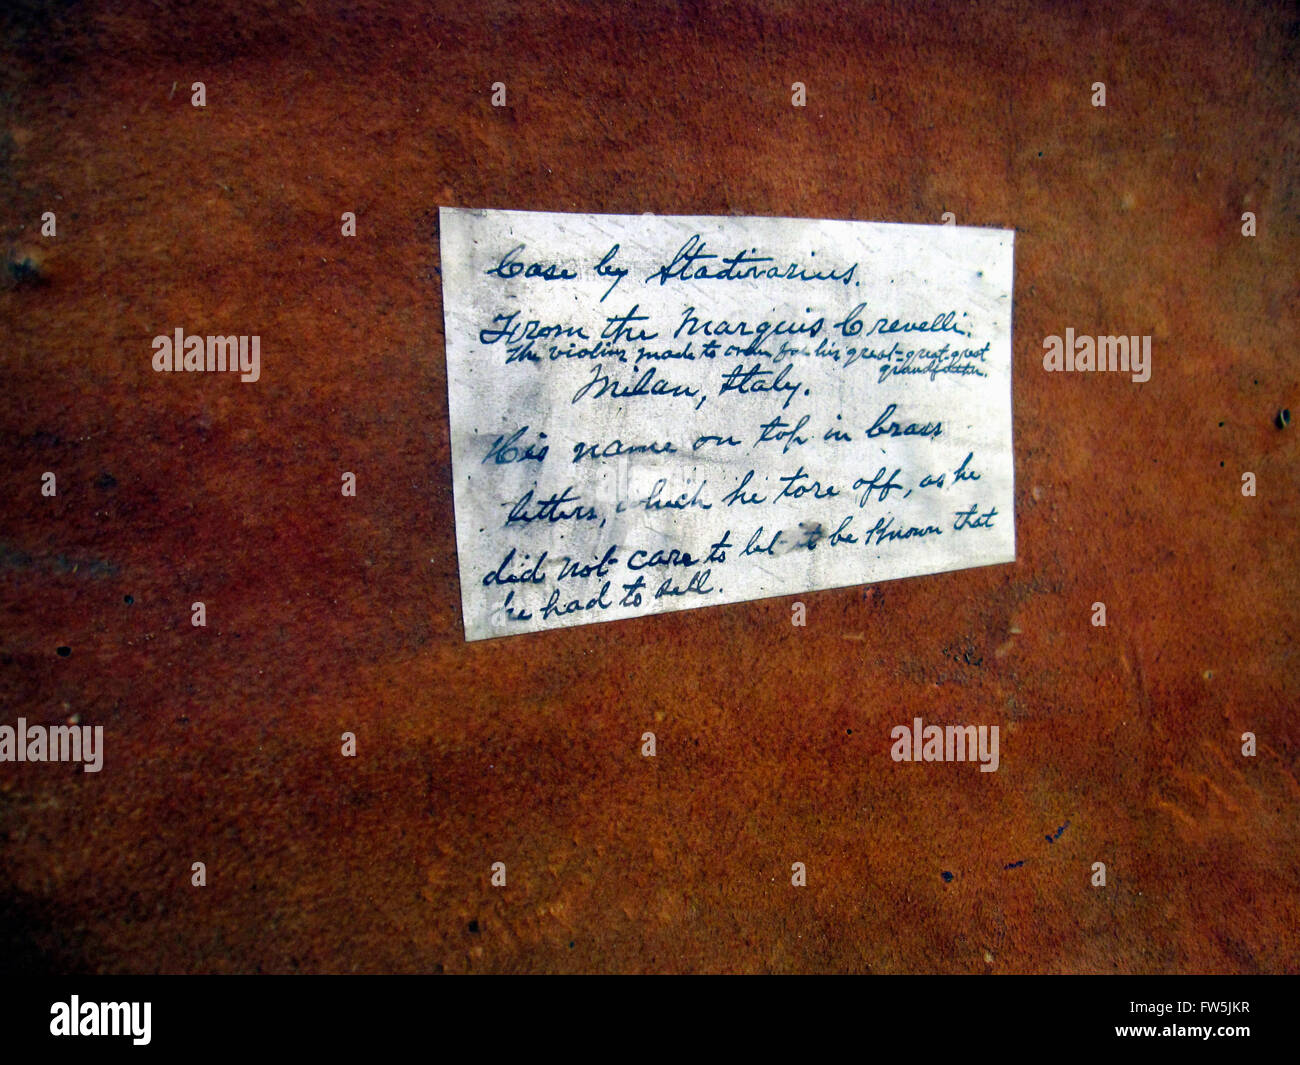 Case by Stadivarius.
From the Marquis Crevelli.
the violins made to order for his great-great-great
grandfather.
Milan, Italy.
His name on top in brass
letters, which he tore off, as he
did not care to let it be known that
he had to sell.
alamy
alamy
alamy
alamy
alamy stock photo
FW5JKR
www.alamy.com